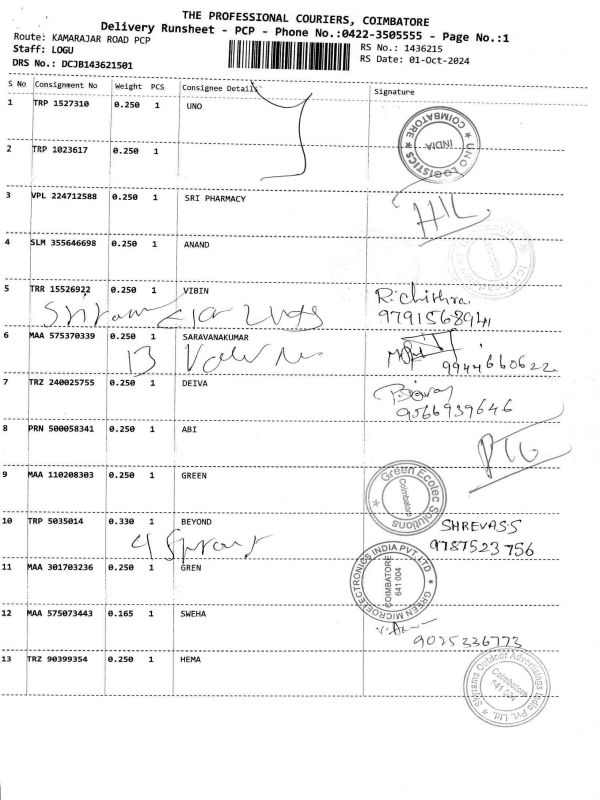 THE PROFESSIONAL COURIERS, COIMBATORE
Delivery Runsheet - PCP - Phone No.:0422-3505555 - Page No.:1
Route: KAMARAJAR ROAD PCP
Staff: LOGU
DRS No.: DCJB143621501
RS No.: 1436215
RS Date: 01-Oct-2024
S No Consignment No Weight PCS Consignee Details Signature
1 TRP 1527310 0.250 1 UNO
UNO LOGISTICS * COIMBATORE *
INDIA
2 TRP 1023617 0.250 1
3 VPL 224712588 0.250 1 SRI PHARMACY
4 SLM 355646698 0.250 1 ANAND
5 TRR 15526922 0.250 1 VIBIN
R. Chithra
9791568941
Sriram
6 MAA 575370339 0.250 1 SARAVANAKUMAR
9944660622
13
7 TRZ 240025755 0.250 1 DEIVA
9566939646
8 PRN 500058341 0.250 1 ABI
9 MAA 110208303 0.250 1 GREEN
Green Ecotec Solutions *
Coimbatore
10 TRP 5035014 0.330 1 BEYOND
SHREVASS
9787523756
4
11 MAA 301703236 0.250 1 GREN
GREEN MICROELECTRONICS INDIA PVT. LTD *
COIMBATORE
641 004
12 MAA 575073443 0.165 1 SWEHA
9025336773
13 TRZ 90399354 0.250 1 HEMA
Outdoor Advertisings India Pvt. Ltd. *
Coimbatore
641 004